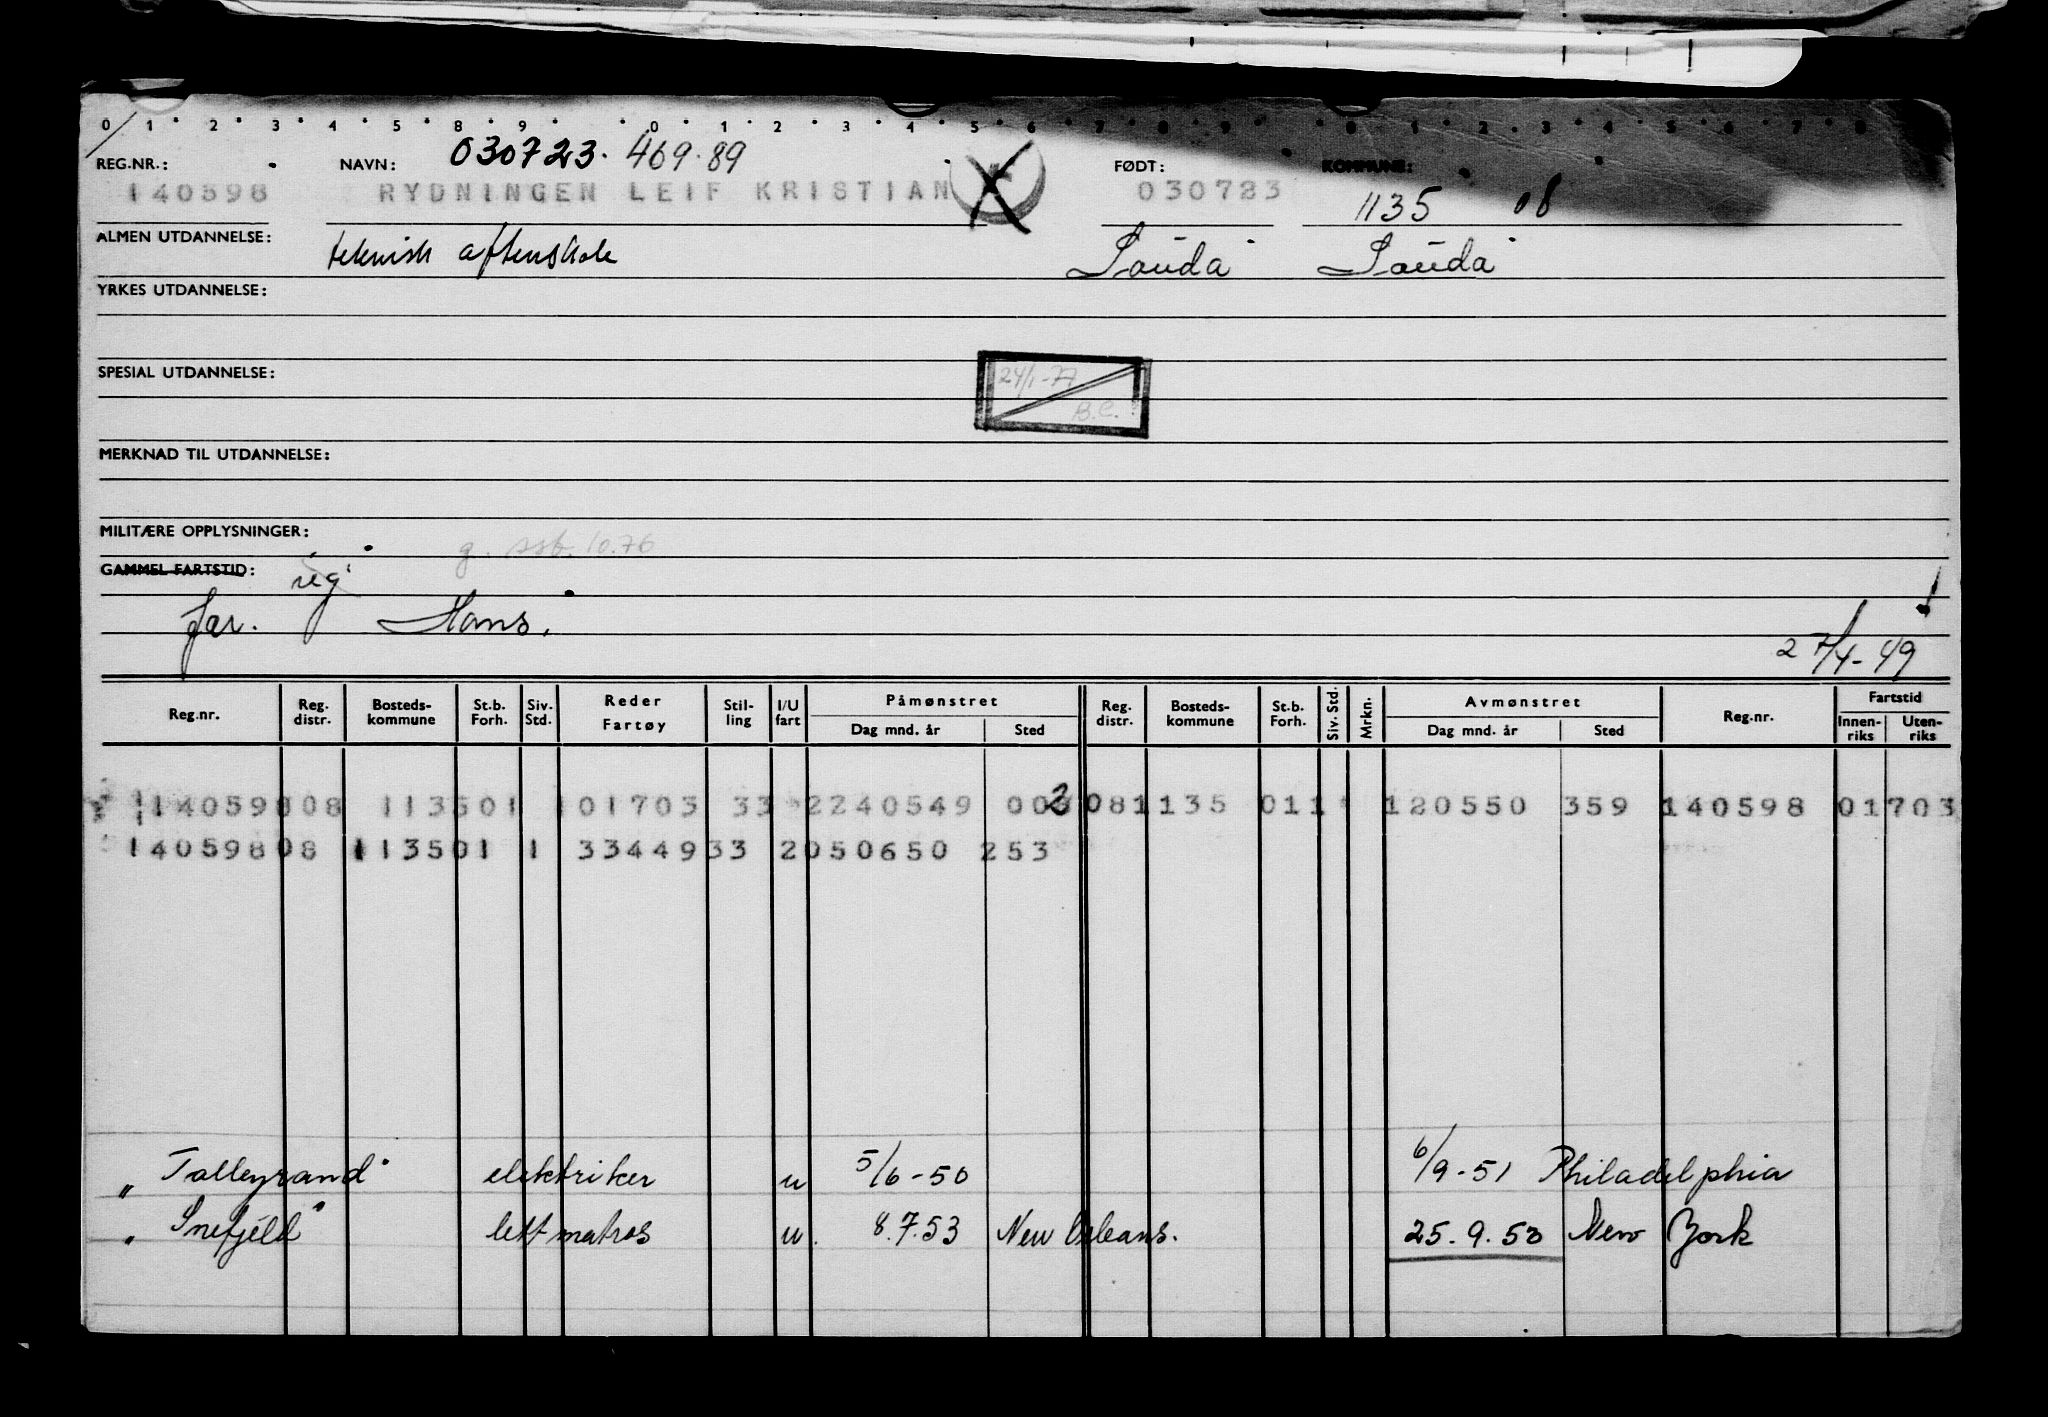 0 1 2 3 4 5 8 9 0 1 2 3 4 5 6 7 8 9 0 1 2 3 4 5 6 7 8
REG.NR.: NAVN: 030723. 469.89 FØDT: KOMMUNE:
140598 RYDNINGEN LEIF KRISTIAN 030723 1135 08
ALMEN UTDANNELSE: teknisk aftenskole Sauda Sauda
YRKES UTDANNELSE:
SPESIAL UTDANNELSE: 24/1-77
B.C.
MERKNAD TIL UTDANNELSE:
MILITÆRE OPPLYSNINGER:
g. ssb. 10.76
GAMMEL FARTSTID: reg
far. Hans.
27/4-49
Reg.nr. Reg. distr. Bosteds-kommune St.b. Forh. Siv. Std. Reder Fartøy Stil-ling I/U fart Påmønstret Dag mnd. år Sted Reg. distr. Bosteds-kommune St.b. Forh. Siv. Std. Mrkn. Avmønstret Dag mnd. år Sted Reg.nr. Fartstid Innen-riks Uten-riks
140598 08 1135 01 1 01703 33 2 240549 003 08 1135 01 1 120550 359 140598 01703
140598 08 1135 01 1 33449 33 2 050650 253
"Talleyrand" elektriker u 5/6-50 6/9-51 Philadelphia
"Snefjeld" lettmatros u. 8.7.53 New Orleans. 25.9.53 New York